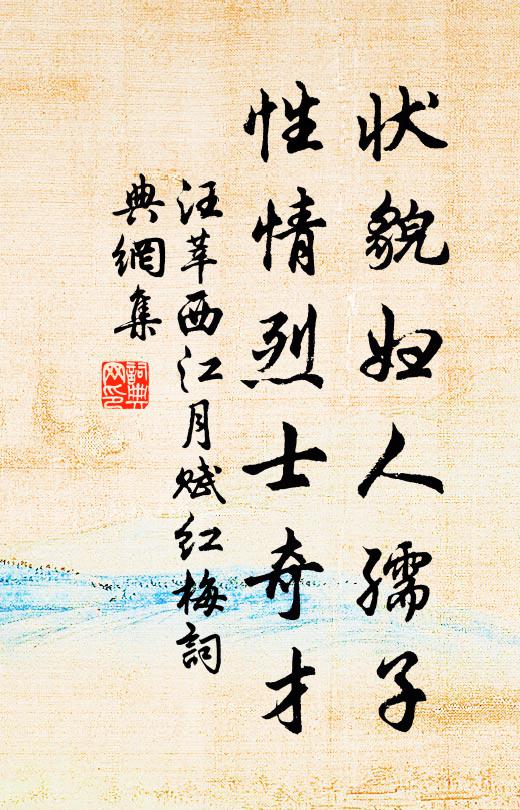 状貌妇人孺子
性情烈士奇才
汪莘西江月赋红梅词
典網集
詞典網印